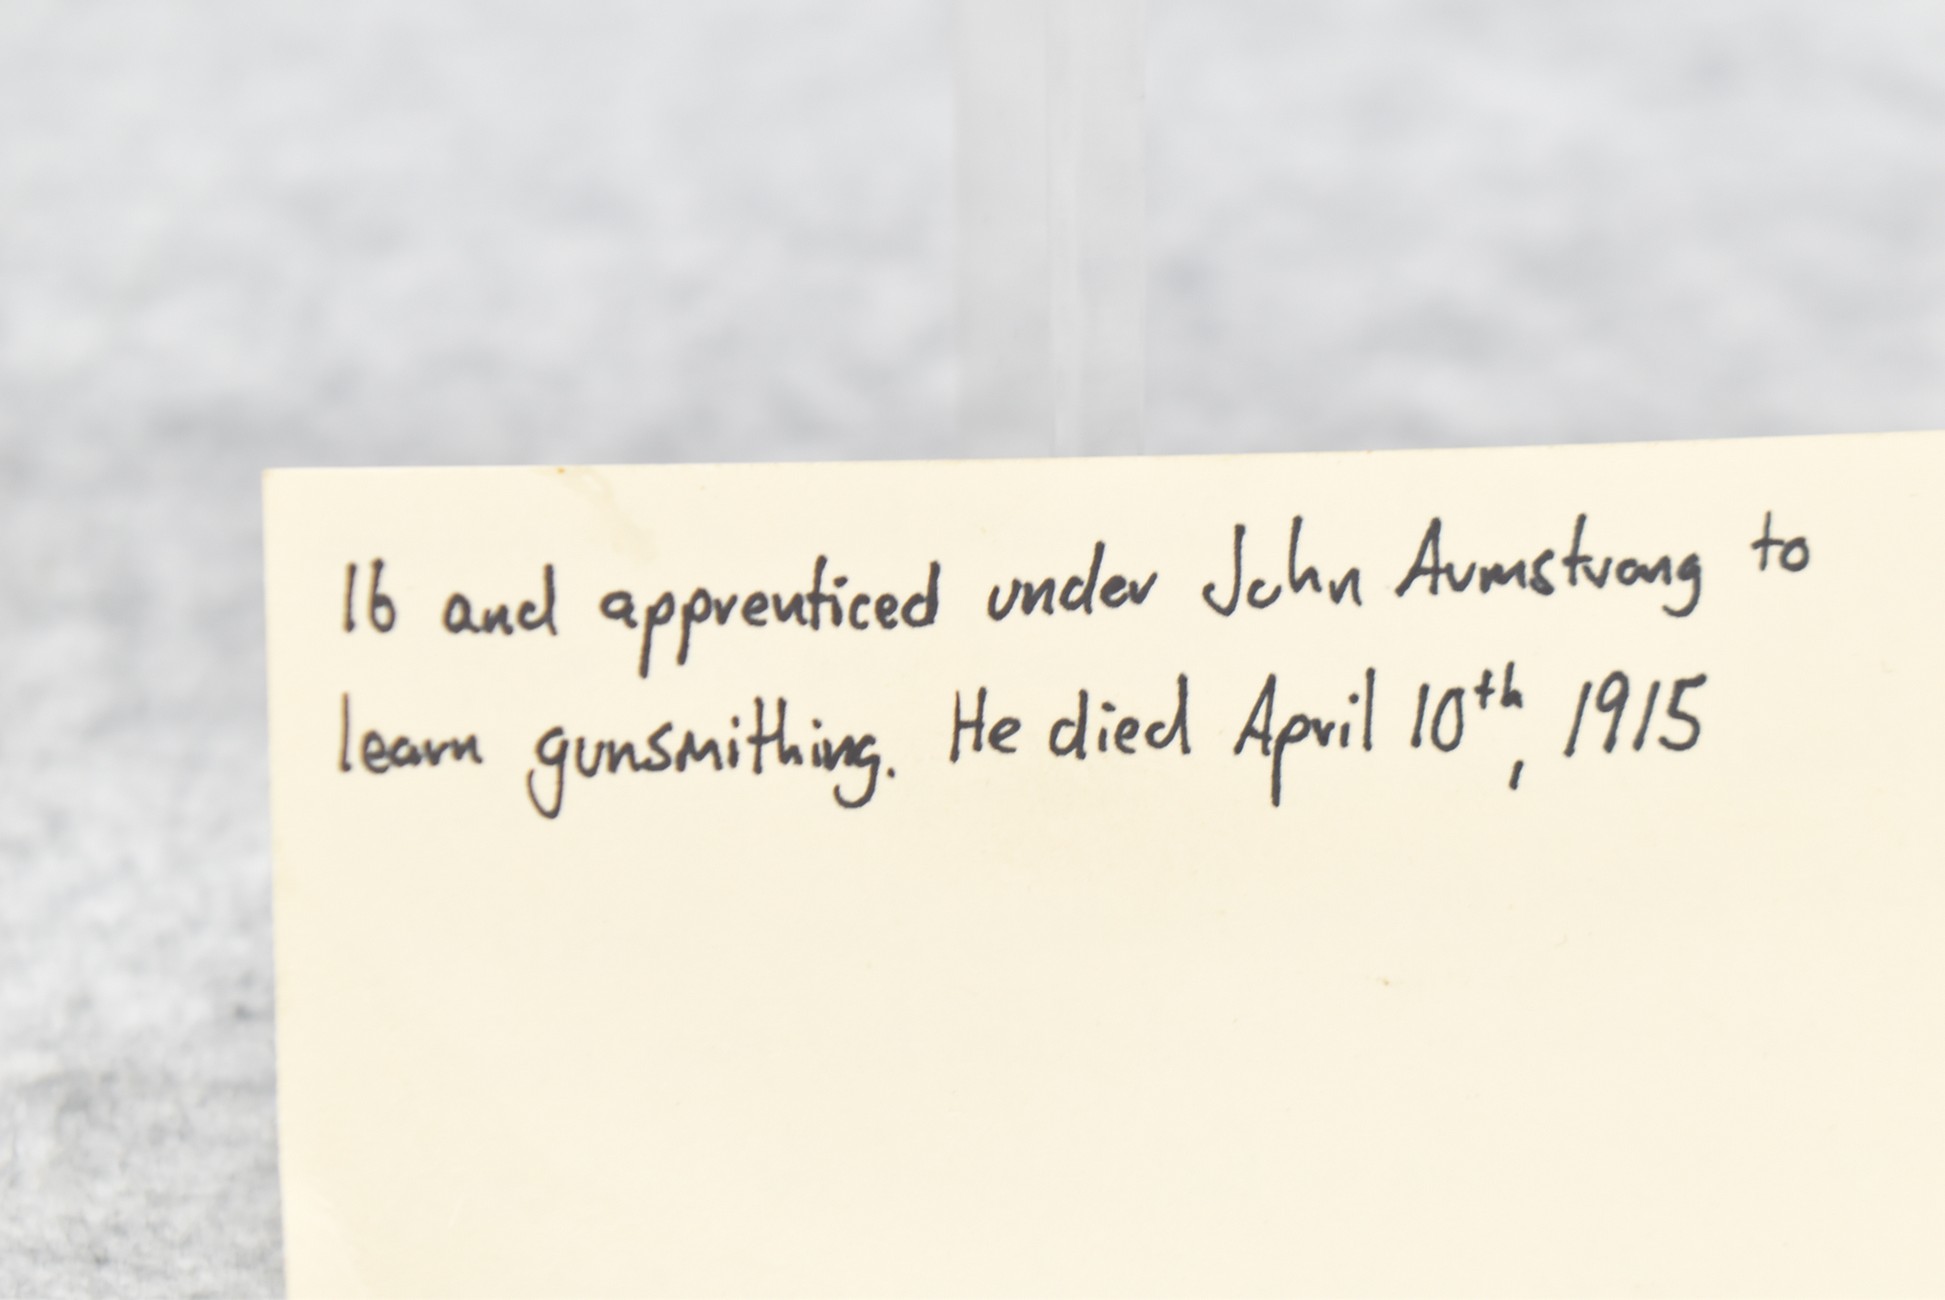 16 and apprenticed under John Armstrong to
learn gunsmithing. He died April 10th, 1915